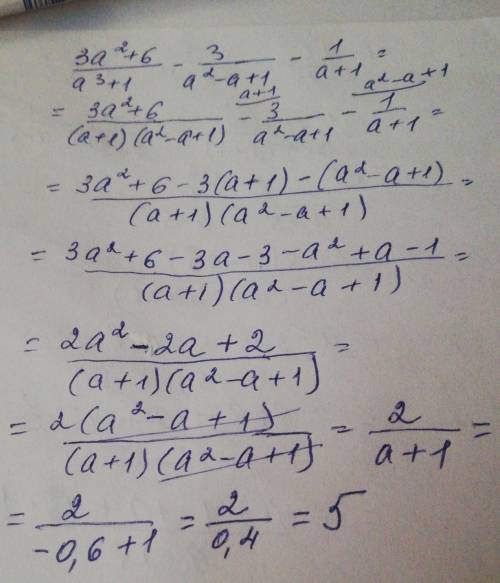 (3a²+6)/(a³+1) - 3/(a²-a+1) - 1/(a+1) =
= (3a²+6)/((a+1)(a²-a+1)) - 3/(a²-a+1) (a+1) - 1/(a+1) (a²-a+1) =
= (3a²+6-3(a+1)-(a²-a+1))/((a+1)(a²-a+1)) =
= (3a²+6-3a-3-a²+a-1)/((a+1)(a²-a+1)) =
= (2a²-2a+2)/((a+1)(a²-a+1)) =
= (2(a²-a+1))/((a+1)(a²-a+1)) = 2/(a+1) =
= 2/(-0,6+1) = 2/0,4 = 5